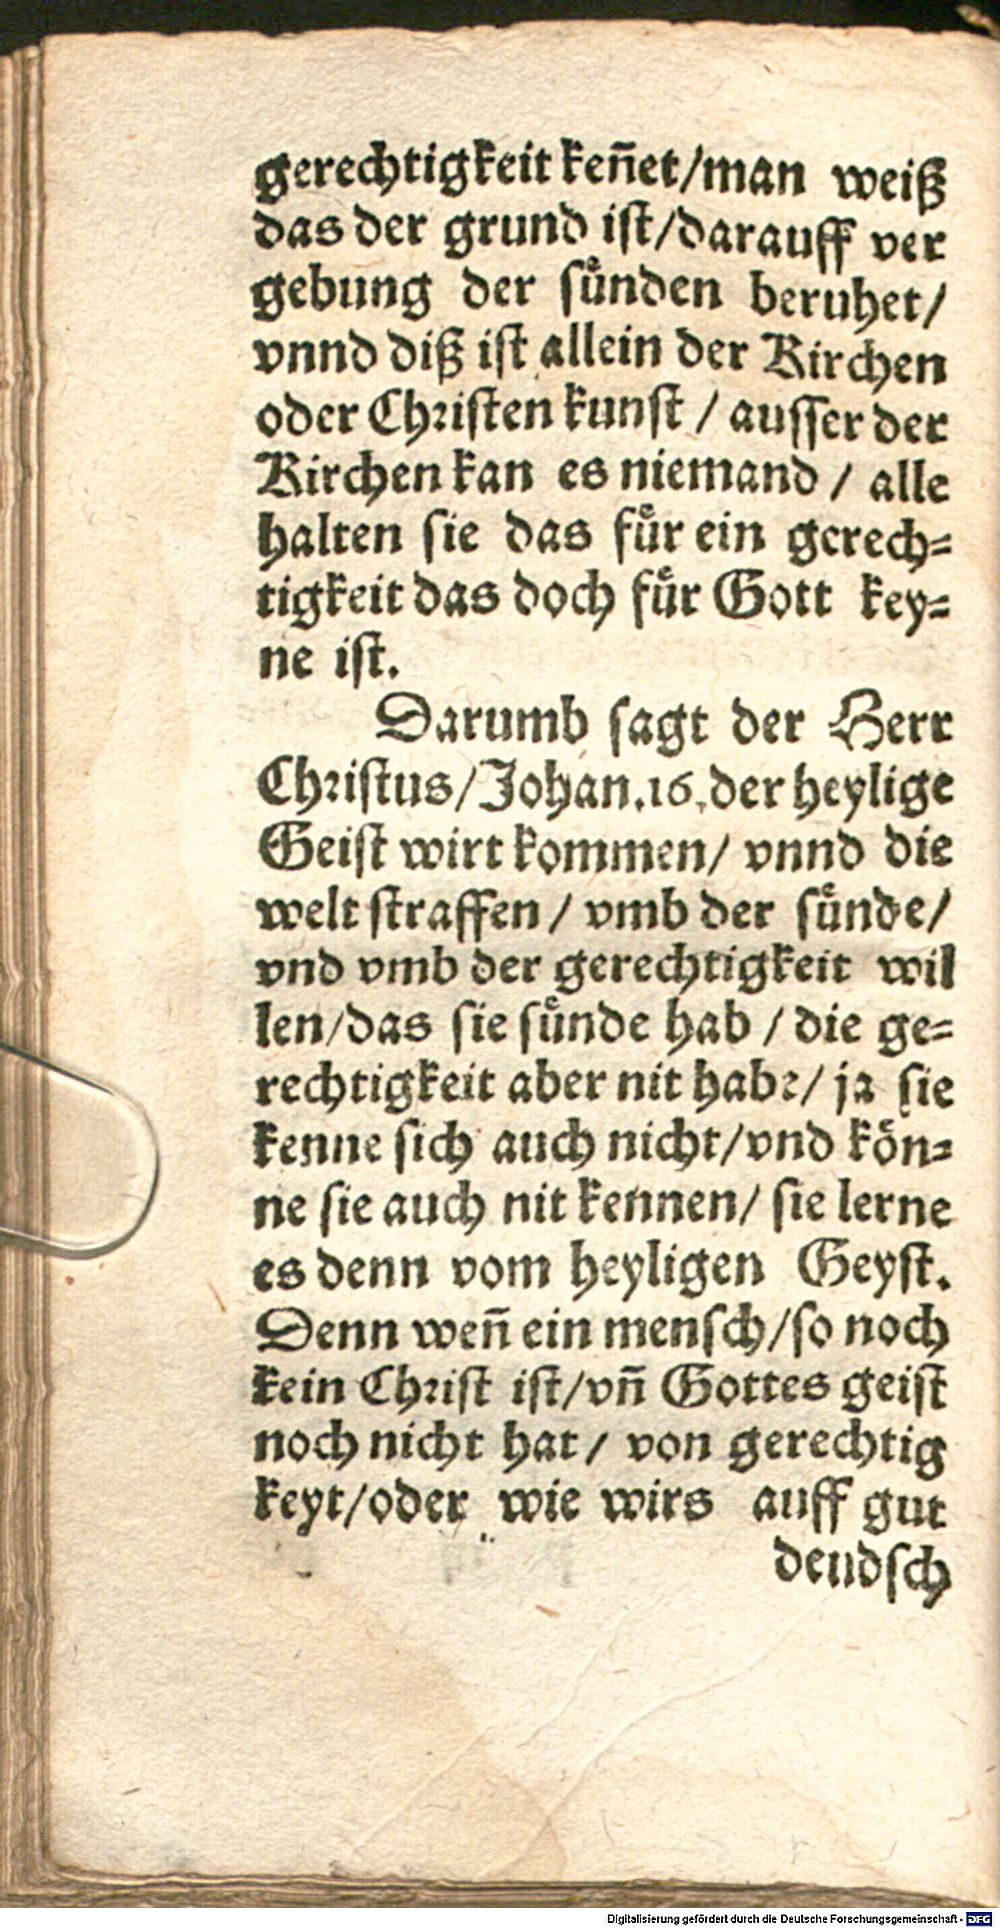 gerechtigkeit keñet/man weiß
das der grund ist/darauff ver
gebung der sůnden beruhet/
vnnd diß ist allein der Kirchen
oder Christen kunst / ausser der
Kirchen kan es niemand / alle
halten sie das fůr ein gerech=
tigkeit das doch fůr Gott key=
ne ist.
Darumb sagt der Herr
Christus/Johan.16.der heylige
Geist wirt kommen/ vnnd die
welt straffen / vmb der sůnde/
vnd vmb der gerechtigkeit wil
len/das sie sůnde hab / die ge=
rechtigkeit aber nit habe/ ja sie
kenne sich auch nicht/vnd kön=
ne sie auch nit kennen/ sie lerne
es denn vom heyligen Geyst.
Denn weñ ein mensch/so noch
kein Christ ist/vñ Gottes geist
noch nicht hat/ von gerechtig
keyt/oder wie wirs auff gut
deudsch
Digitalisierung gefördert durch die Deutsche Forschungsgemeinschaft - DFG